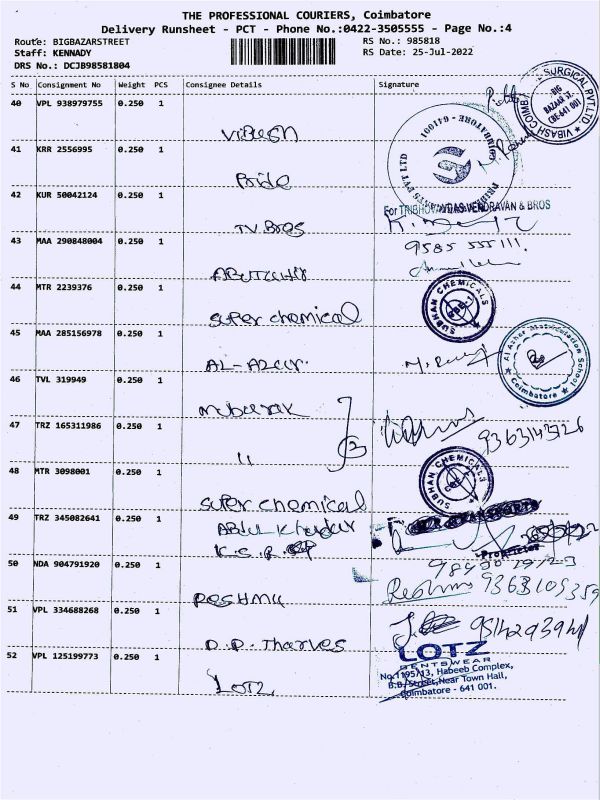 THE PROFESSIONAL COURIERS, Coimbatore
Delivery Runsheet - PCT - Phone No.:0422-3505555 - Page No.:4
Route: BIGBAZARSTREET RS No.: 985818
Staff: KENNADY RS Date: 25-Jul-2022
DRS No.: DCJB98581804
S No Consignment No Weight PCS Consignee Details Signature
40 VPL 938979755 0.250 1
SURGICAL PVT.LTD
BIG
BAZAAR ST.
CBE-641 001
VIBASH COIMB
41 KRR 2556995 0.250 1
Pride
42 KUR 50042124 0.250 1
For TRIBHOVANDAS VENDRAVAN & BROS
TV. Bros
43 MAA 290848004 0.250 1
9585 555 111.
44 MTR 2239376 0.250 1
SUBHAN CHEMICALS
CBE-1
Super chemical
45 MAA 285156978 0.250 1
Al Azhar Matriculation School
Coimbatore
AL-Azar.
46 TVL 319949 0.250 1
mubarak
47 TRZ 165311986 0.250 1
9363143726
11
48 MTR 3098001 0.250 1
SUBHAN CHEMICALS
CBE-1
Super chemical
49 TRZ 345082641 0.250 1
Abdul Khadar
K.S.R.
Proprietor
50 NDA 904791920 0.250 1
Reshma
51 VPL 334688268 0.250 1
D.P. Tharves
52 VPL 125199773 0.250 1
LOTZ
GENTSWEAR
No.1195/13, Habeeb Complex,
B.B. Street, Near Town Hall,
Coimbatore - 641 001.
LOTZ